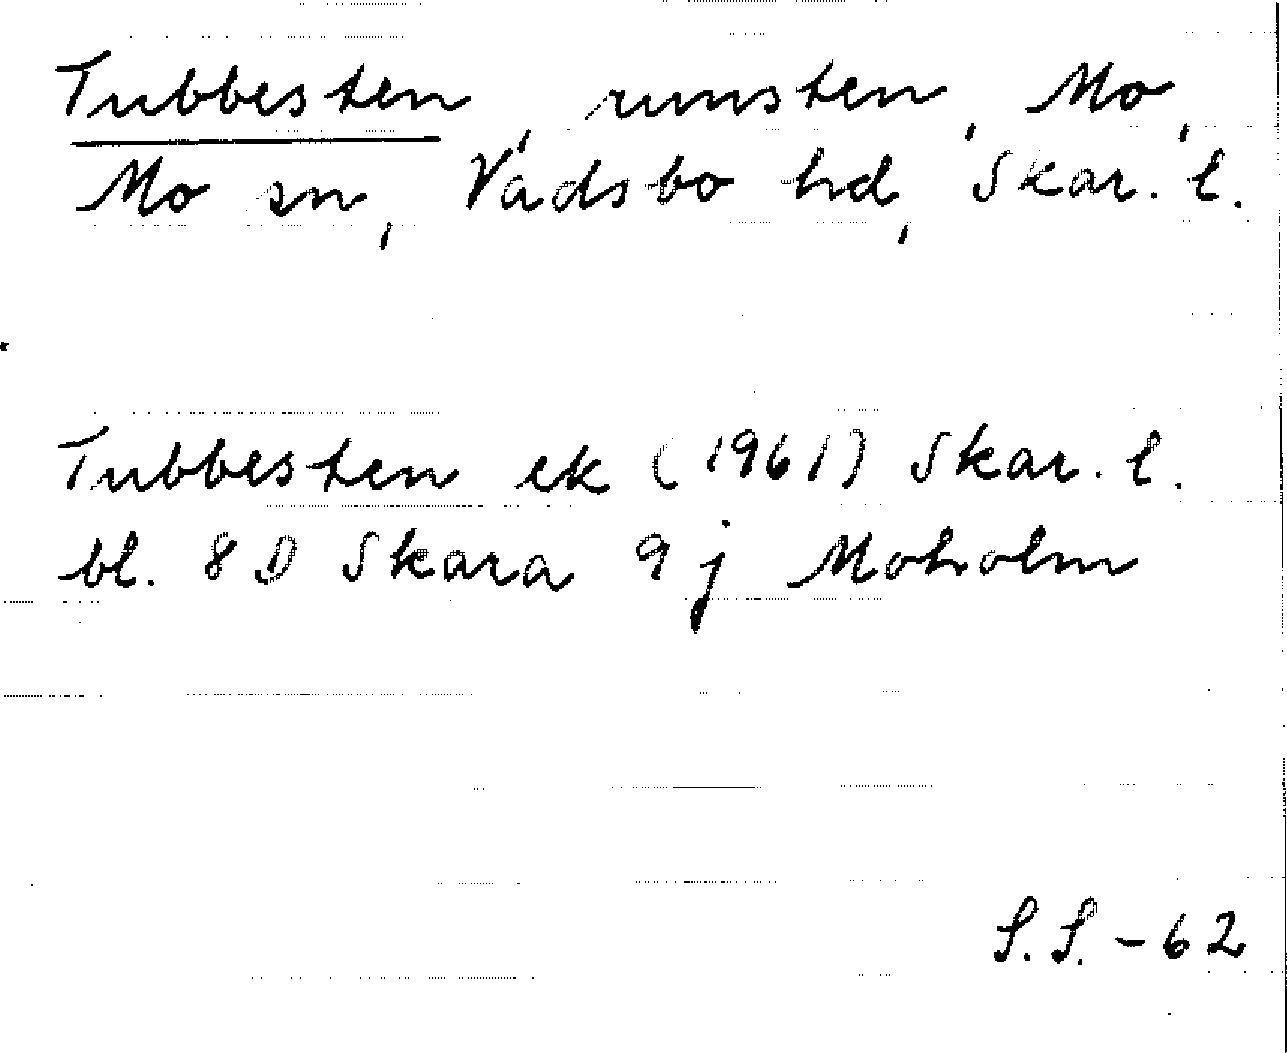 Tubbesten, runsten, Mo,
Mo sn, Vadsbo hd, Skar. l.
Tubbesten ek (1961) Skar. l.
bl. 8 D Skara 9 j Moholm
S.S. -62